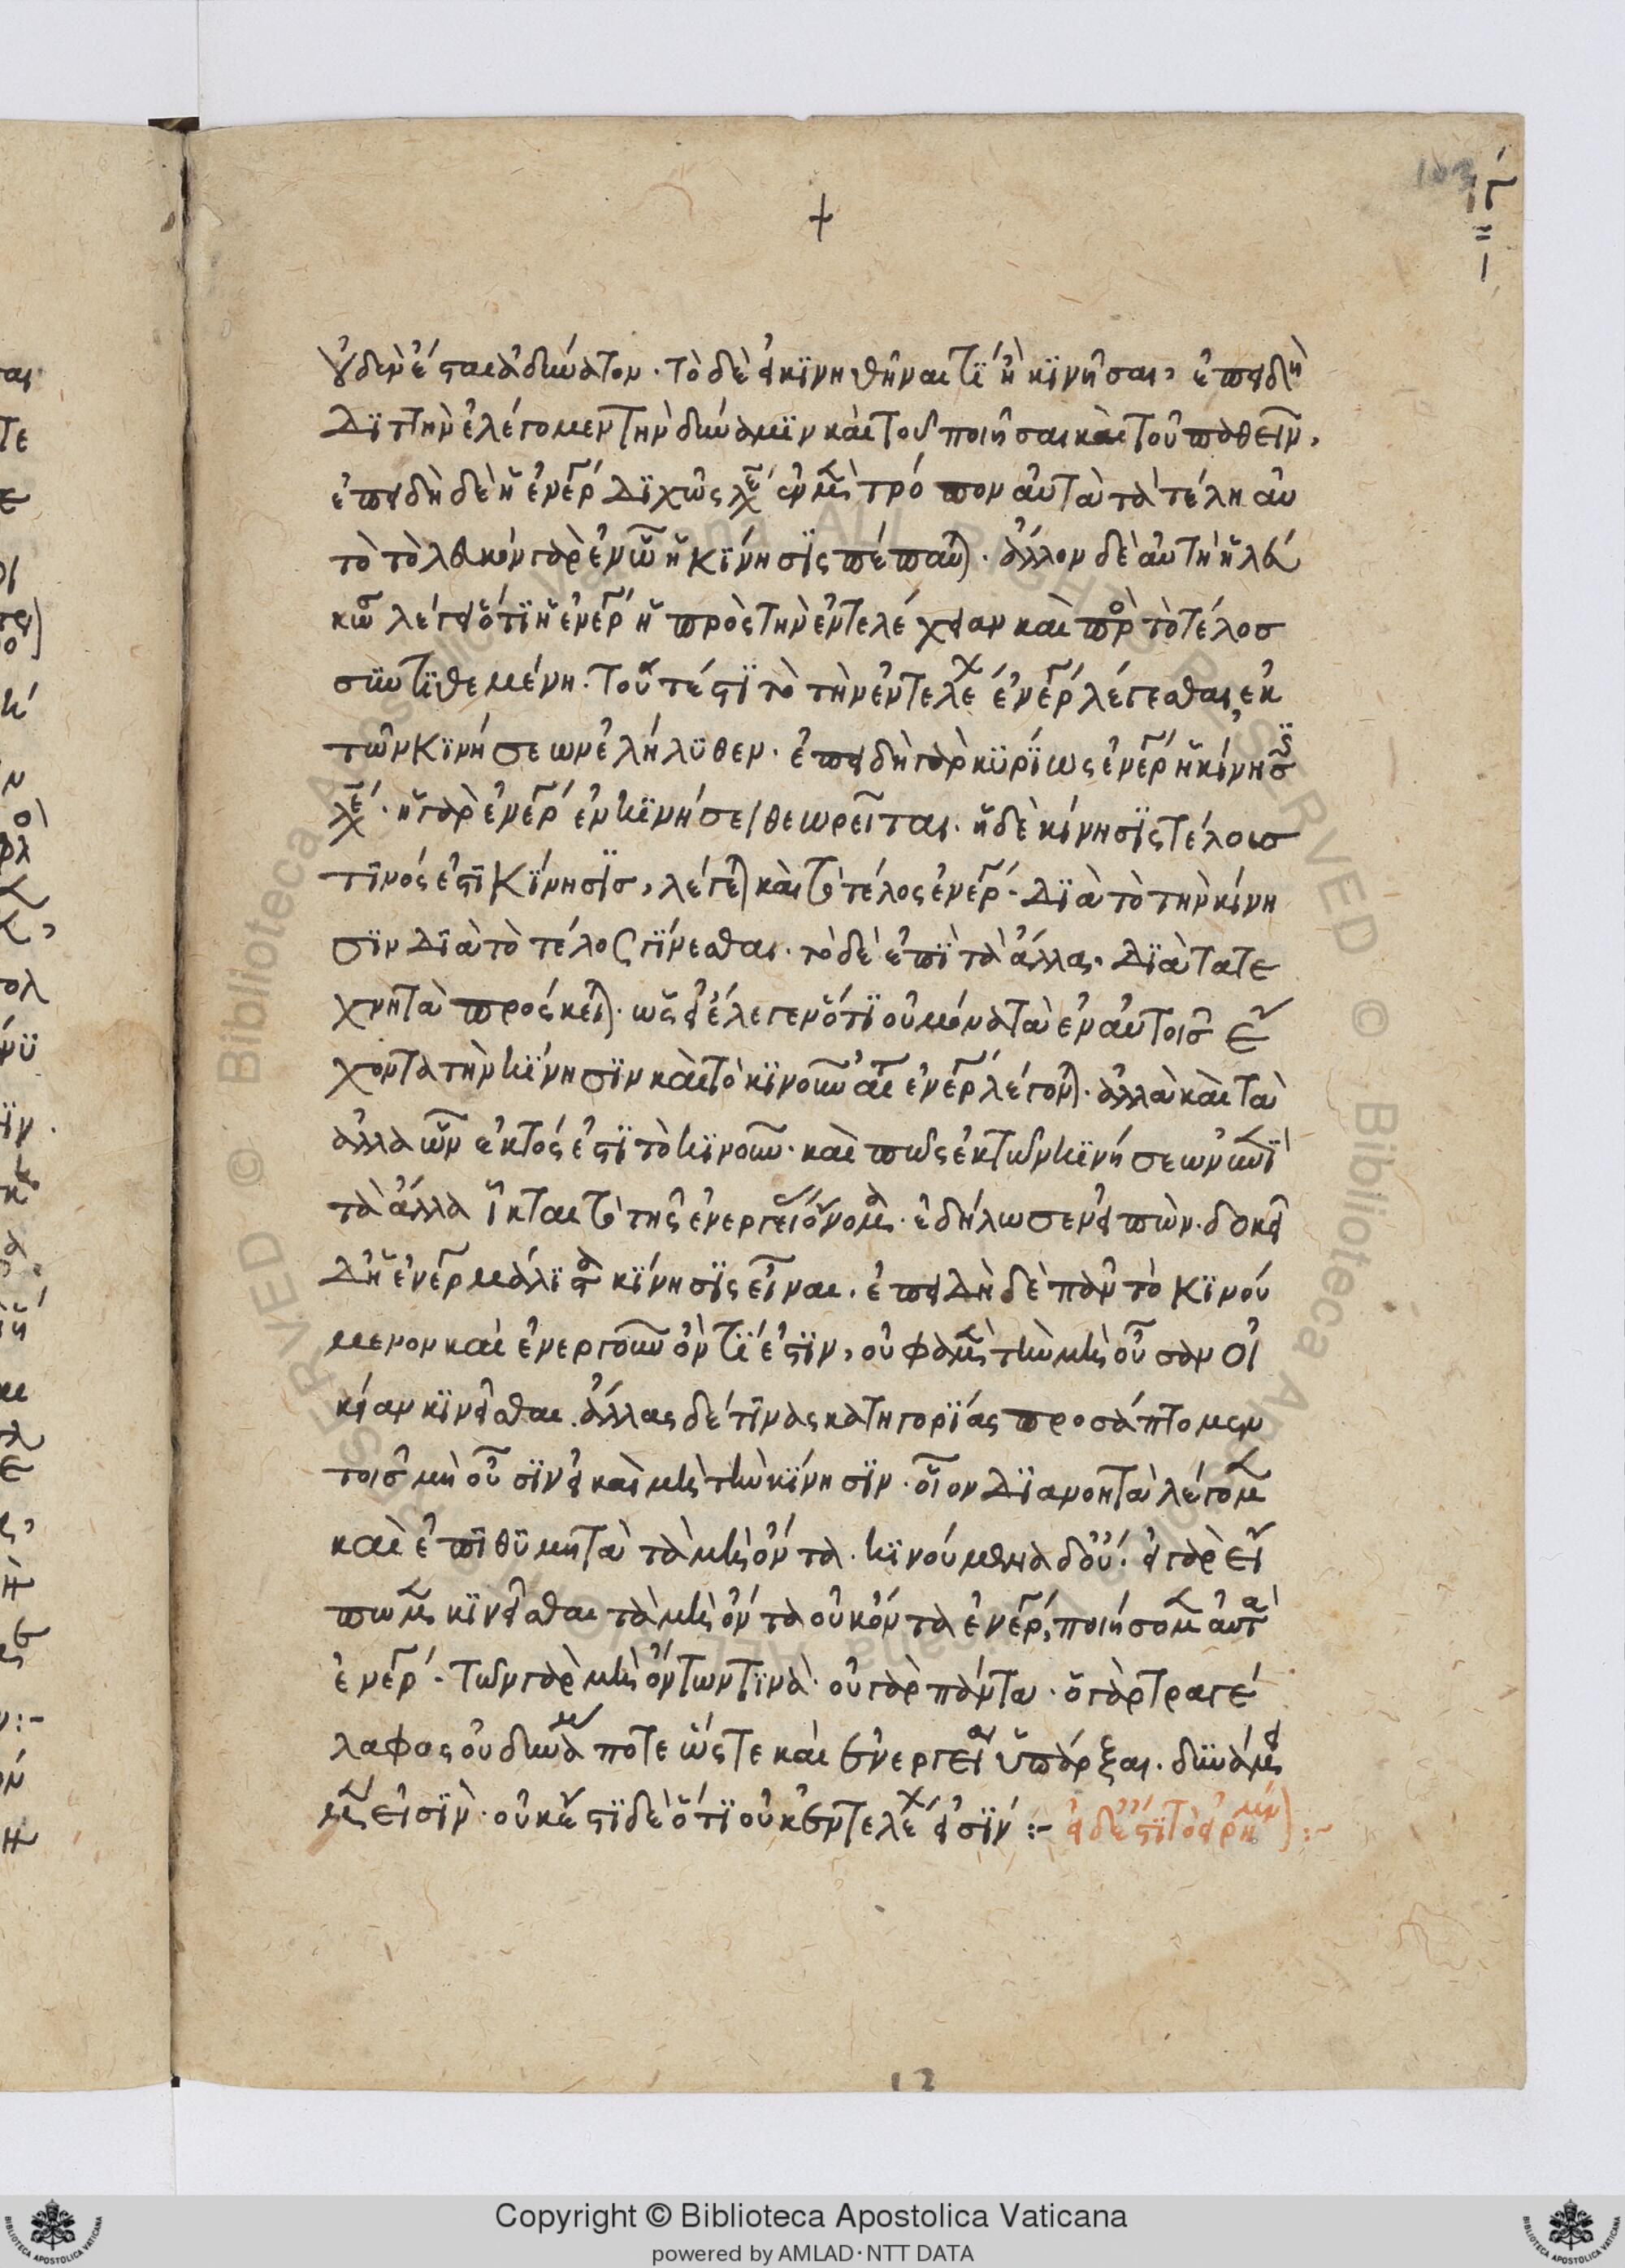 103 ιγʹ
οὐδὲν ἔσται ἀδύνατον. τὸ δὲ ἢ κϊνηθῆναι τϊ ἢ κϊνῆσαι, ἐπειδὴ
Δϊττὴν ἐλέγομεν τὴν δύναμϊν καὶ τοῦ ποιῆσαι καὶ τοῦ παθεῖν,
ἐπειδὴ δὲ ἡ ἐνέργ Δϊχῶς λέγ τρόπον αὐτὰ τὰ τέλη αὐ
τὸ τὸ λευκόν γὰρ ἐν ᾧ ἡ Κϊνησϊς πέπαυται. ἄλλον δὲ αὐτὴ ἡ λεύ
κωσ λέγει ὅτϊ ἡ ἐνέργ ἡ πρὸς τὴν ἐντελέχειαν καὶ πρὸ τὸ τέλοσ
συντϊθεμένη. τοῦτέστϊ τὸ τὴν ἐντελέχ ἐνέργ λέγεσθαι, ἐκ
τῶν Κϊνήσεων ἐλήλϋθεν. ἐπειδὴ γὰρ κϋρϊως ἐνέργ ἡ κίνησϊς
λέγ. ἡ γὰρ ἐνέργ ἐν κϊνήσει θεωρεῖται. ἡ δὲ κίνησϊς τέλουσ
τϊνός ἐστϊ Κϊνησϊσ, λέγεται καὶ τὸ τέλος ἐνέργ. Δϊὰ τὸ τὴν κίνη
σϊν Δϊὰ τὸ τέλος γϊνεσθαι. τὸ δὲ ἐπϊ τὰ ἄλλα. Δϊὰ τα τε
χνητὰ πρόςκειται. ὡς εἰ ἔλεγεν ὅτϊ οὐ μόνα τὰ ἐν αὐτοῖσ ἔ
χοντα τὴν κϊνησϊν καὶ τὸ κϊνοῦν αὐτ ἐνέργ λέγονται. ἀλλὰ καὶ τὰ
ἄλλα ὧν ἐκτός ἐστϊ τὸ κϊνοῦν. καὶ πῶς ἐκ τῶν κϊνήσεων ἐπὶ
τὰ ἄλλα ἥκται τὸ τῆς ἐνεργείας ὄνομα. ἐδήλωσεν εἰπών. δοκεῖ
Δὴ ἐνέργ μάλϊστα κϊνησϊς εἶναι. ἐπειΔὴ δὲ πᾶν τὸ Κϊνού
μενον καὶ ἐνεργοῦν ὄν τϊ ἐστϊν, οὐ φαμὲν τὴν μὴ οὖσαν οἰ
κίαν κϊνεῖσθαι. ἄλλας δέ τϊνας κατηγορϊας προσάπτομεν
τοῖσ μὴ οὖσϊν εἰ καὶ μὴ τὴν κϊνησϊν. οἷον Δϊανοητὰ λέγομεν
καὶ ἐπϊθϋμητὰ τὰ μὴ ὄντα. κϊνούμενα δ οὔ. εἰ γὰρ εἴ
πωμεν κϊνεῖσθαι τὰ μὴ ὄντα οὐκ ὄντα ἐνέργ, ποιήσομεν αὐτὰ
ἐνέργ. τῶν γὰρ μὴ ὄντων τϊνὰ. οὐ γὰρ πάντα. ὁ γὰρ τραγέ
λαφος οὐ δύναμ ποτε ὥςτε καὶ ἐνεργείαι ϋπάρξαι. δϋνάμει
μέν εἰσϊν. οὐκ ἔστϊ δὲ ὅτϊ οὐκ ἐντελέχ εἰσϊν :- εἰ δέ ἐστϊ τὸ εἰρημένον :-
12
Copyright © Biblioteca Apostolica Vaticana
powered by AMLAD·NTT DATA